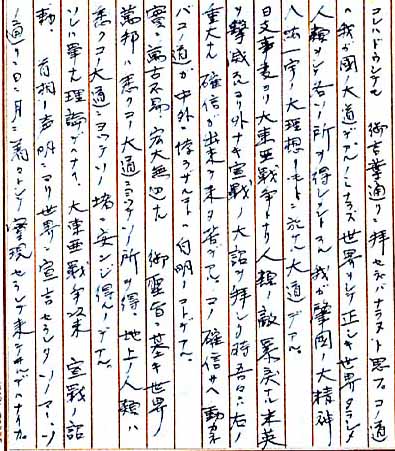 コレハドウシテモ 御言葉通リ拝セネバナラヌト思フ。コノ道
ハ我ガ国ノ大道デアルノミナラズ世界ヲシテ正シキ世界タラシメ
人類ヲシテ各ソノ所ヲ得シメントスル我ガ肇国ノ大精神
八紘一宇ノ大理想ノモトニ 大道デアル。
日支事変ヨリ大東亜戦争トナリ人類ノ敵暴戻ナル米英
ヲ撃滅スルヨリ外ナキ宣戦ノ大詔ヲ拝シタ時吾々ハ右ノ
重大ナル確信ガ出来テ来タ筈デアル。コノ確信サヘ動カネ
バコノ道ガ中外ニ悖ラザルコトハ自明ノコトデアル。
実ニ萬古不易宏大無辺ナル 御聖旨ニ基キ世界ノ
萬邦ハ悉クコノ大道ニヨッテソノ所ヲ得、地上ノ人類ハ
悉クコノ大道ニヨッテソノ堵ニ安ンジ得ルノデアル。
ソレハ単ナル理論デナイ。大東亜戦争以来 宣戦ノ詔
勅、首相ノ声明ニヨリ世界ニ宣言セラレタソノ
通リニ日ニ月ニ着々トシテ実現セラレテ来テヰルデハナイカ。